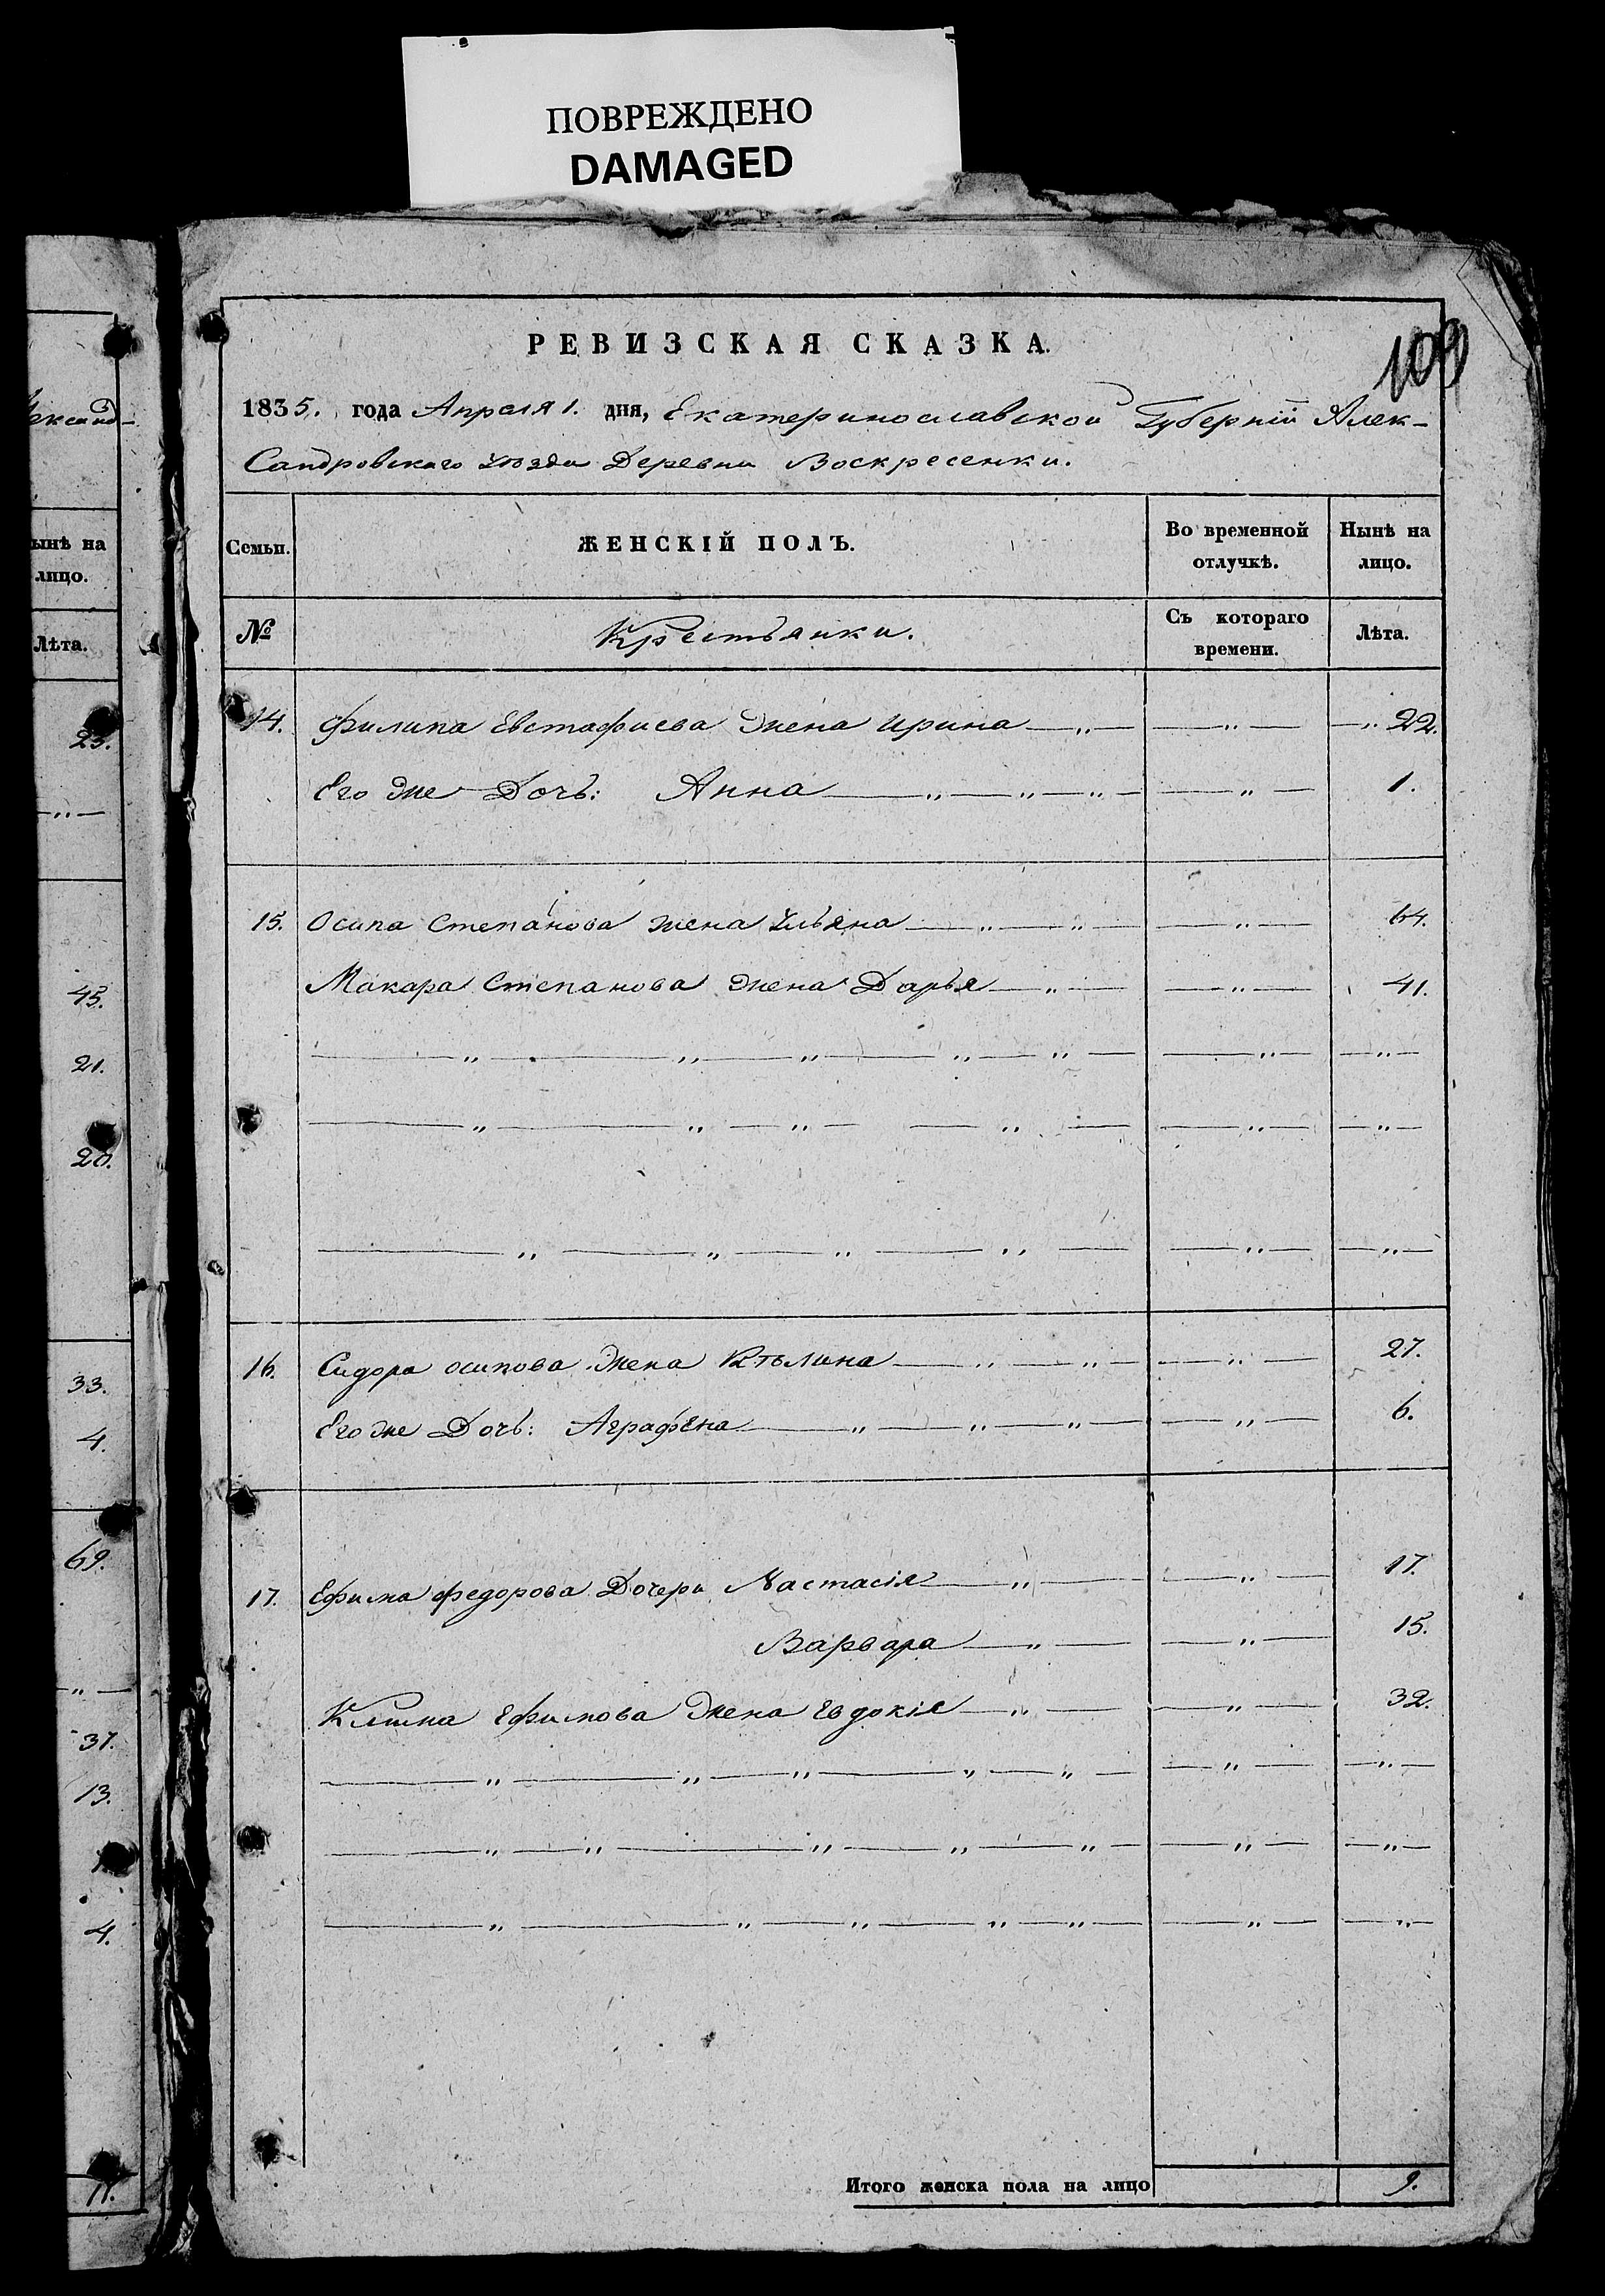 ПОВРЕЖДЕНО
DAMAGED
ександ-
ынѣ на
лицо.
Лѣта.
23.
—„—
45.
21.
20.
33.
4.
69.
—„—
37.
13.
4.
11.
109
РЕВИЗСКАЯ СКАЗКА.
1835. года Апреля 1. дня, Екатеринославской Губернiи Алек-
сандровскаго уѣзда Деревни Воскресенки.
Семьи. ЖЕНСКІЙ ПОЛЪ. Во временной отлучкѣ. Нынѣ на лицо.
№ Крестьянки. Съ котораго времени. Лѣта.
14. Филипа Евстафиева жена Ирина —„— —„— —„ 22.
Его же Дочь: Анна —„—„—„— —„— 1.
15. Осипа Степанова жена Ульяна —„—„— —„— 64.
Макара Степанова жена Дарья —„— —„— 41.
—„—„—„—„—„— —„— —„—
—„—„—„— —„— —„— —„—
—„—„—„—„— —„— —„—
16. Сидора осипова жена Ктьлина —„—„— —„— 27.
Его же Дочь: Аграфена —„—„—„— —„— 6.
17. Ефима федорова Дочери Настасiя —„— —„— 17.
Варвара —„— —„— 15.
Клима Ефимова жена Евдокiя —„— —„— 32.
—„—„—„—„—„— —„— —„—
—„—„—„—„—„— —„— —„—
—„—„—„—„—„— —„— —„—
Итого женска пола на лицо 9.